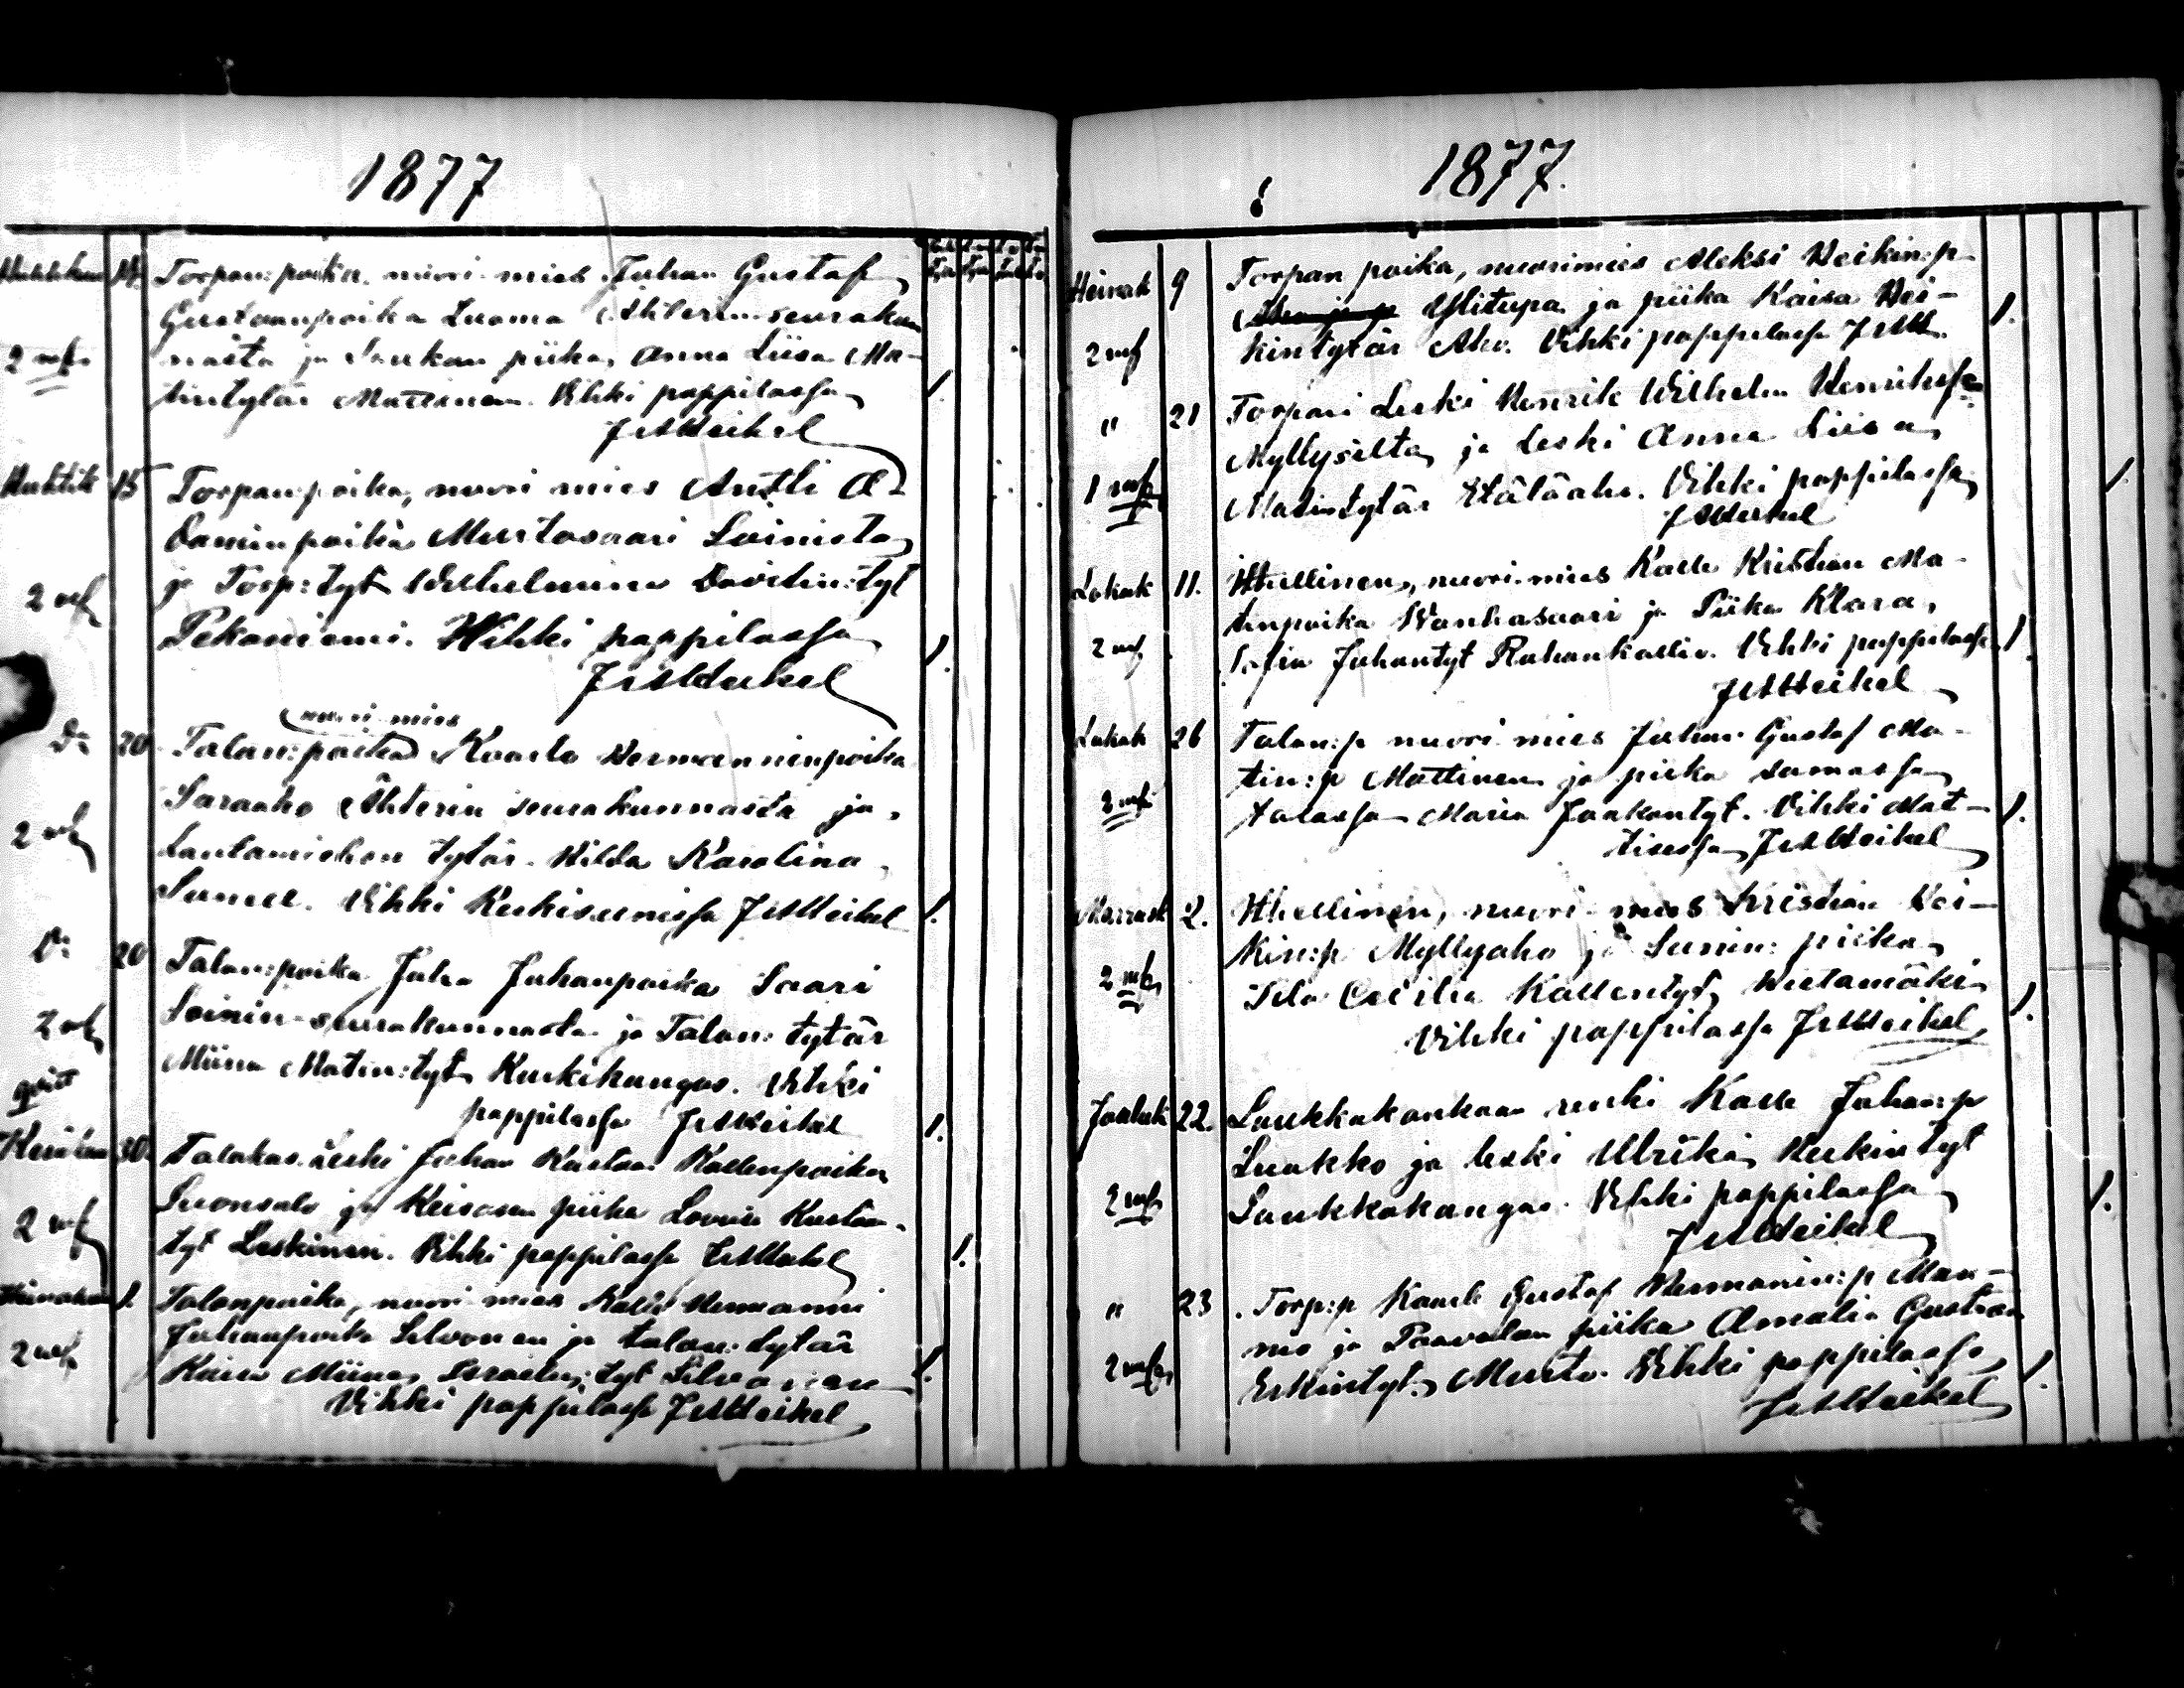 1877
Huhtikuu 14. Torpan: poika, nuori mies Juhan Gustaf
Gustaanpoika Luoma Ähterin seurakun
2 mk nasta ja Saukan piika, Anna Liisa Ma-
tintytär Mattinen. Vihki pappilassa 1.
JAHeikel
Huhtik 15 Torpan: poika, nuori mies Antti A-
daminpoika Murtosaari Soinista
2 mk ja Torp: tyt Wilhelmina Davidin: tyt
Pekaniemi. Wihki pappilassa 1.
JAHeikel
nuori mies
Do 20 Talan: poika Kaarlo Hermanninpoika
Saraaho Ähterin seurakunnasta ja
2 mk Lautamiehen tytär Hilda Karolina
. Vihki JAHeikel 1.
Do 20 Talan: poika Juha Juhanpoika Saari
2 mk Soinin seurakunnasta ja Talan: tytär
Miina Matin: tyt Kurkikangas. Vihki
pappilassa JAHeikel 1.
Kesäkuu 30. Talakas leski Juhan Kustaa Kallenpoika
2 mk Suonsalo ja Keisasen piika Lovisa Kustaa-
tyt Leskinen. Vihki pappilassa JAHeikel 1.
Heinäkuu 1. Talanpoika, nuori mies Kalle Hermanni
2 mk Juhanpoika Silvonen ja talan: tytär
Kaisa Miina Israelin: tyt Silvonen 1.
Vihki pappilassa JAHeikel
1877.
Heinäk 9 Torpan poika, nuorimies Aleksi Heikin: p
Ylitupa ja piika Kaisa Hei- 1.
2 mk kintytär Aho. Vihki pappilassa JAH.
" 21 Torpari Leski Henrik Wilhelm
Myllysilta, ja Leski Anna Liisa
1 mk Matintytär Etäläaho. Vihki pappilassa 1.
JAHeikel
Lokak 11. Itsellinen, nuori mies Kalle Kristian Ma-
tinpoika Vanhasaari ja Piika Klara
2 mk Sofia Juhantyt Rahankallio. Vihki pappilassa 1.
JAHeikel
Lokak 26 Talan: p nuori mies Juhan Gustaf Ma-
tin: p Mattinen ja piika samassa
2 mk talassa Maria Jaakontyt. Vihki Mat- 1.
tisessa JAHeikel
Marrask 2. Itsellinen, nuori mies Kristian Hei-
kin: p Myllyaho ja piika
2 mk Cecilia Kallentyt, Hietamäki 1.
Vihki pappilassa JAHeikel
Jouluk 22. Laukkakankaan renki Kalle Juhan: p
Luukko ja leski Ulrika Heikintyt
2 mk Laukkakangas. Vihki pappilassa 1.
JAHeikel
" 23 Torp: p Kaarle Gustaf Hermanin: p Man-
ja Paavolan piika Amalia Gustava
2 mk Erkintyt, Murto. Vihki pappilassa 1.
JAHeikel